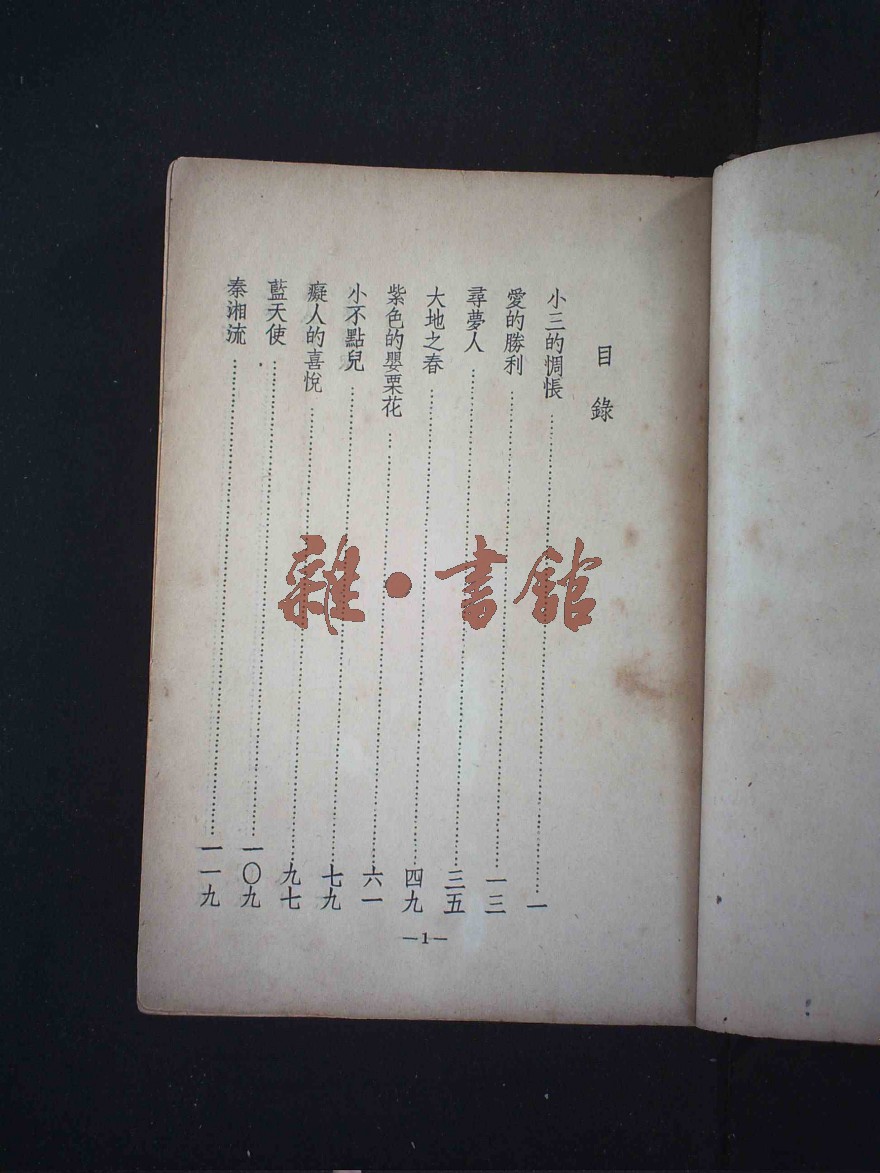 目錄
小三的惆悵……一
愛的勝利……一三
尋夢人……三五
大地之春……四九
紫色的嬰栗花……六一
小不點兒……七九
癡人的喜悅……九七
藍天使……一〇九
秦湘流……一一九
—1—
雜•書館